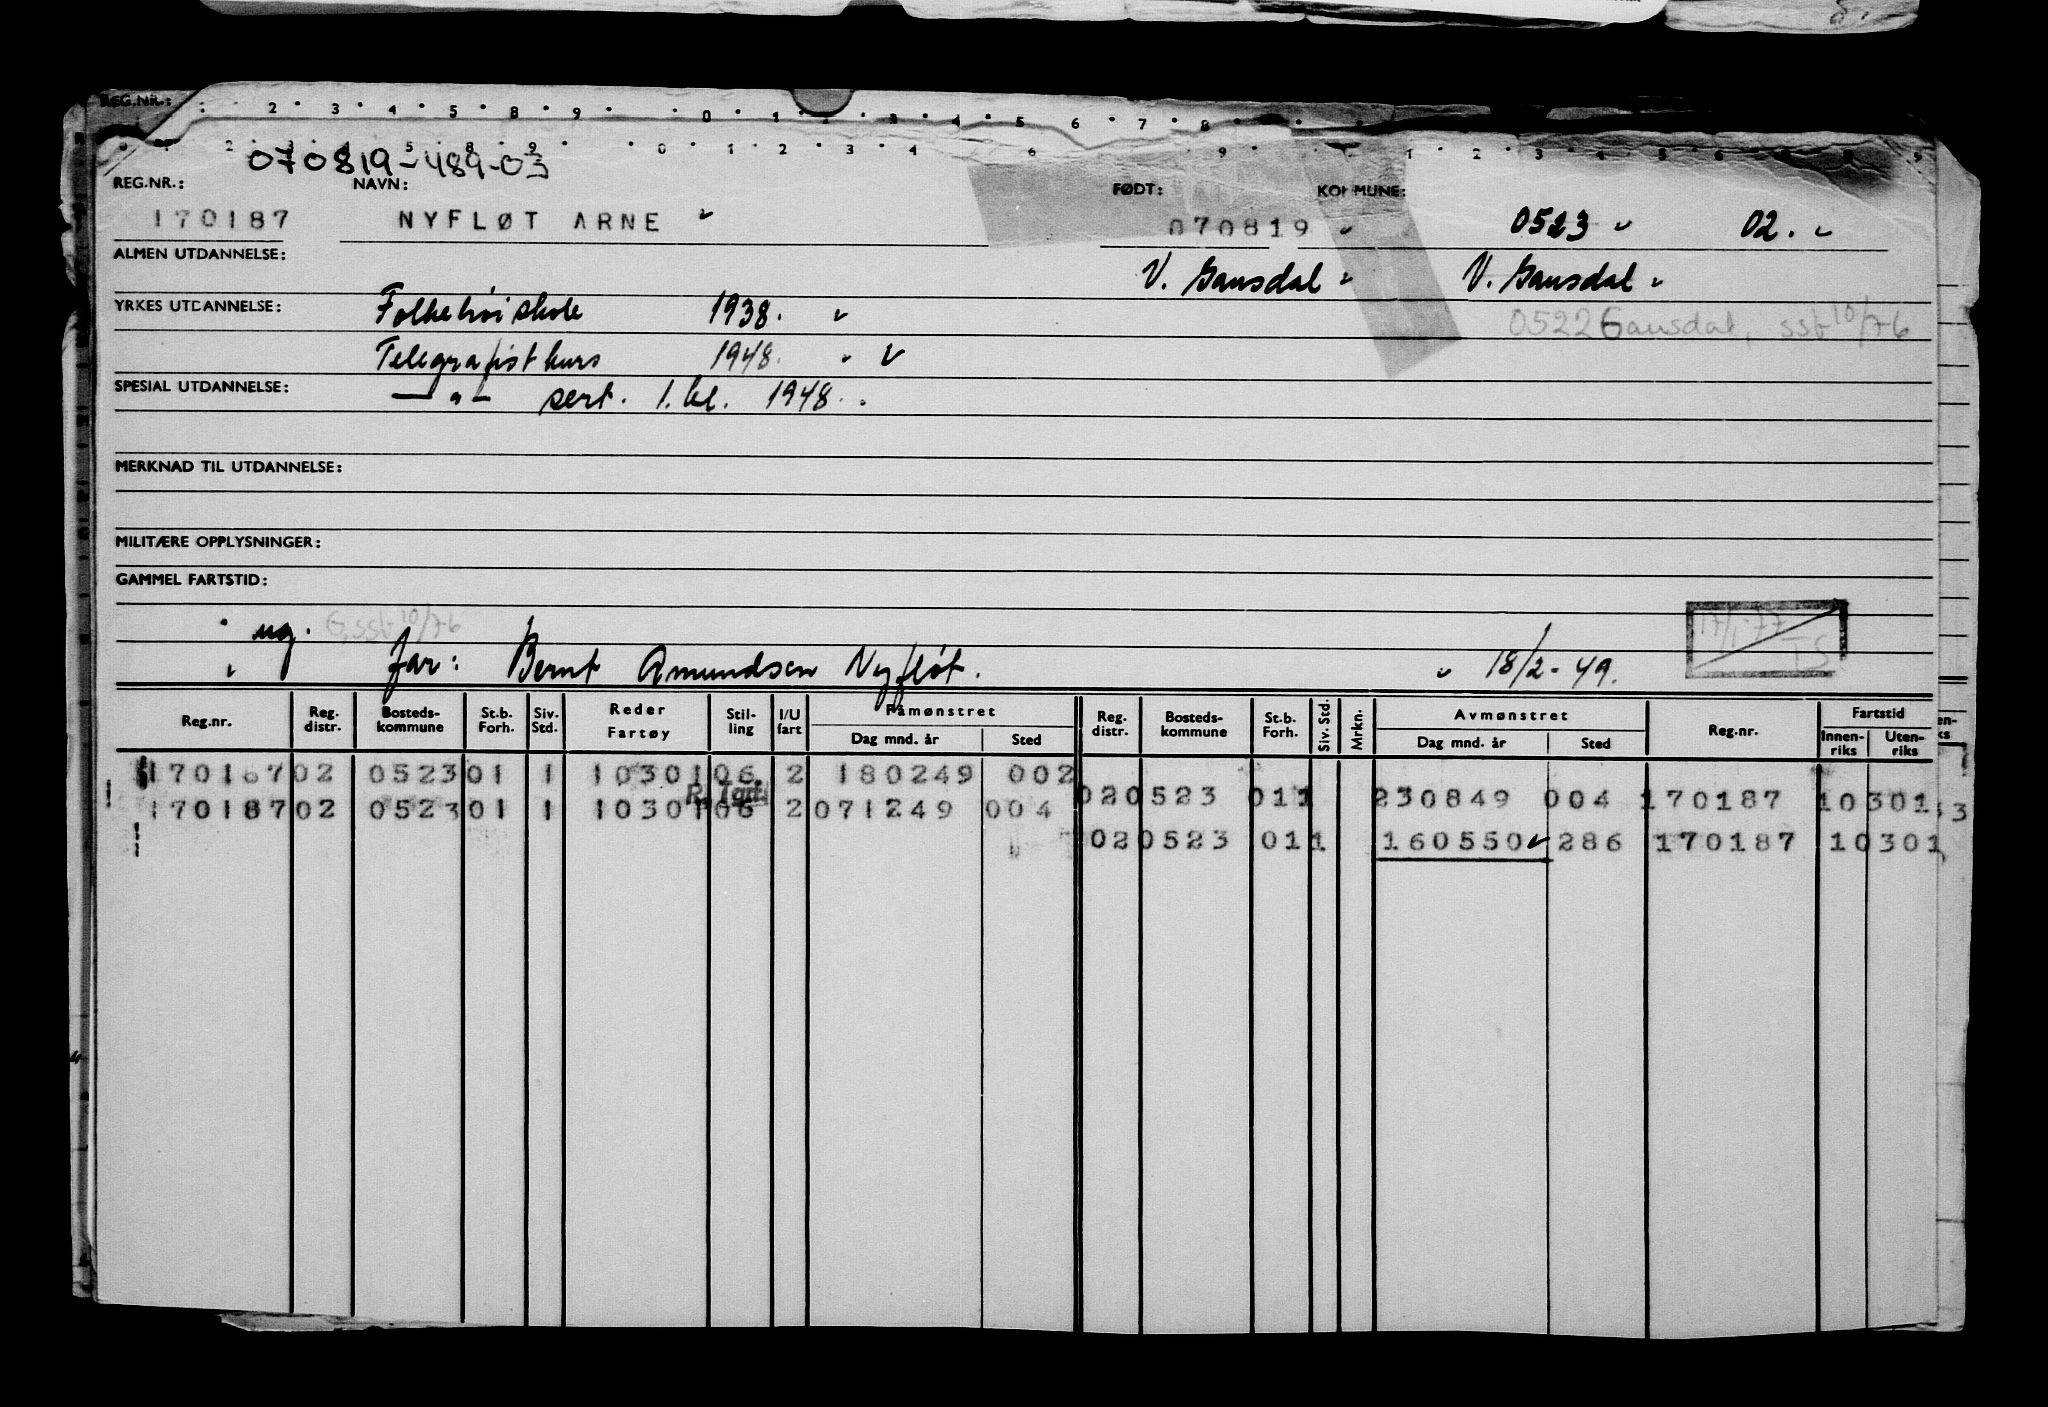 REG.NR.:
2 3 4 5 8 9 0 1 2 3 4 5 6 7 8
070819-489-03
REG.NR.: NAVN: FØDT: KOMMUNE:
170187 NYFLØT ARNE 070819 0523 02.
ALMEN UTDANNELSE: V. Gausdal V. Gausdal
YRKES UTDANNELSE: Folkehøiskole 1938. 0522 Gausdal, ssb 10/76
Telegrafist kurs 1948.
SPESIAL UTDANNELSE: —"— sert. 1. kl. 1948.
MERKNAD TIL UTDANNELSE:
MILITÆRE OPPLYSNINGER:
GAMMEL FARTSTID:
ug. G, ssb 10/76 17/1-77 TS
far: Bernt Amundsen Nyfløt. 18/2-49.
Reg.nr. Reg. distr. Bosteds-kommune St.b. Forh. Siv. Std. Reder Fartøy Stil-ling I/U fart Påmønstret Dag mnd. år Sted Reg. distr. Bosteds-kommune St.b. Forh. Siv. Std. Mrkn. Avmønstret Dag mnd. år Sted Reg.nr. Fartstid Innen-riks Uten-riks
170187 02 0523 01 1 10301 06 2 180249 002
R. Tgrf.
02 0523 01 1 230849 004 170187 10301
170187 02 0523 01 1 10301 06 2 071249 004
02 0523 01 1 160550 286 170187 10301